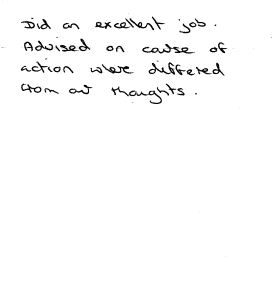 Did an excellent job.
Advised on cause of
action where differed
from our thoughts.